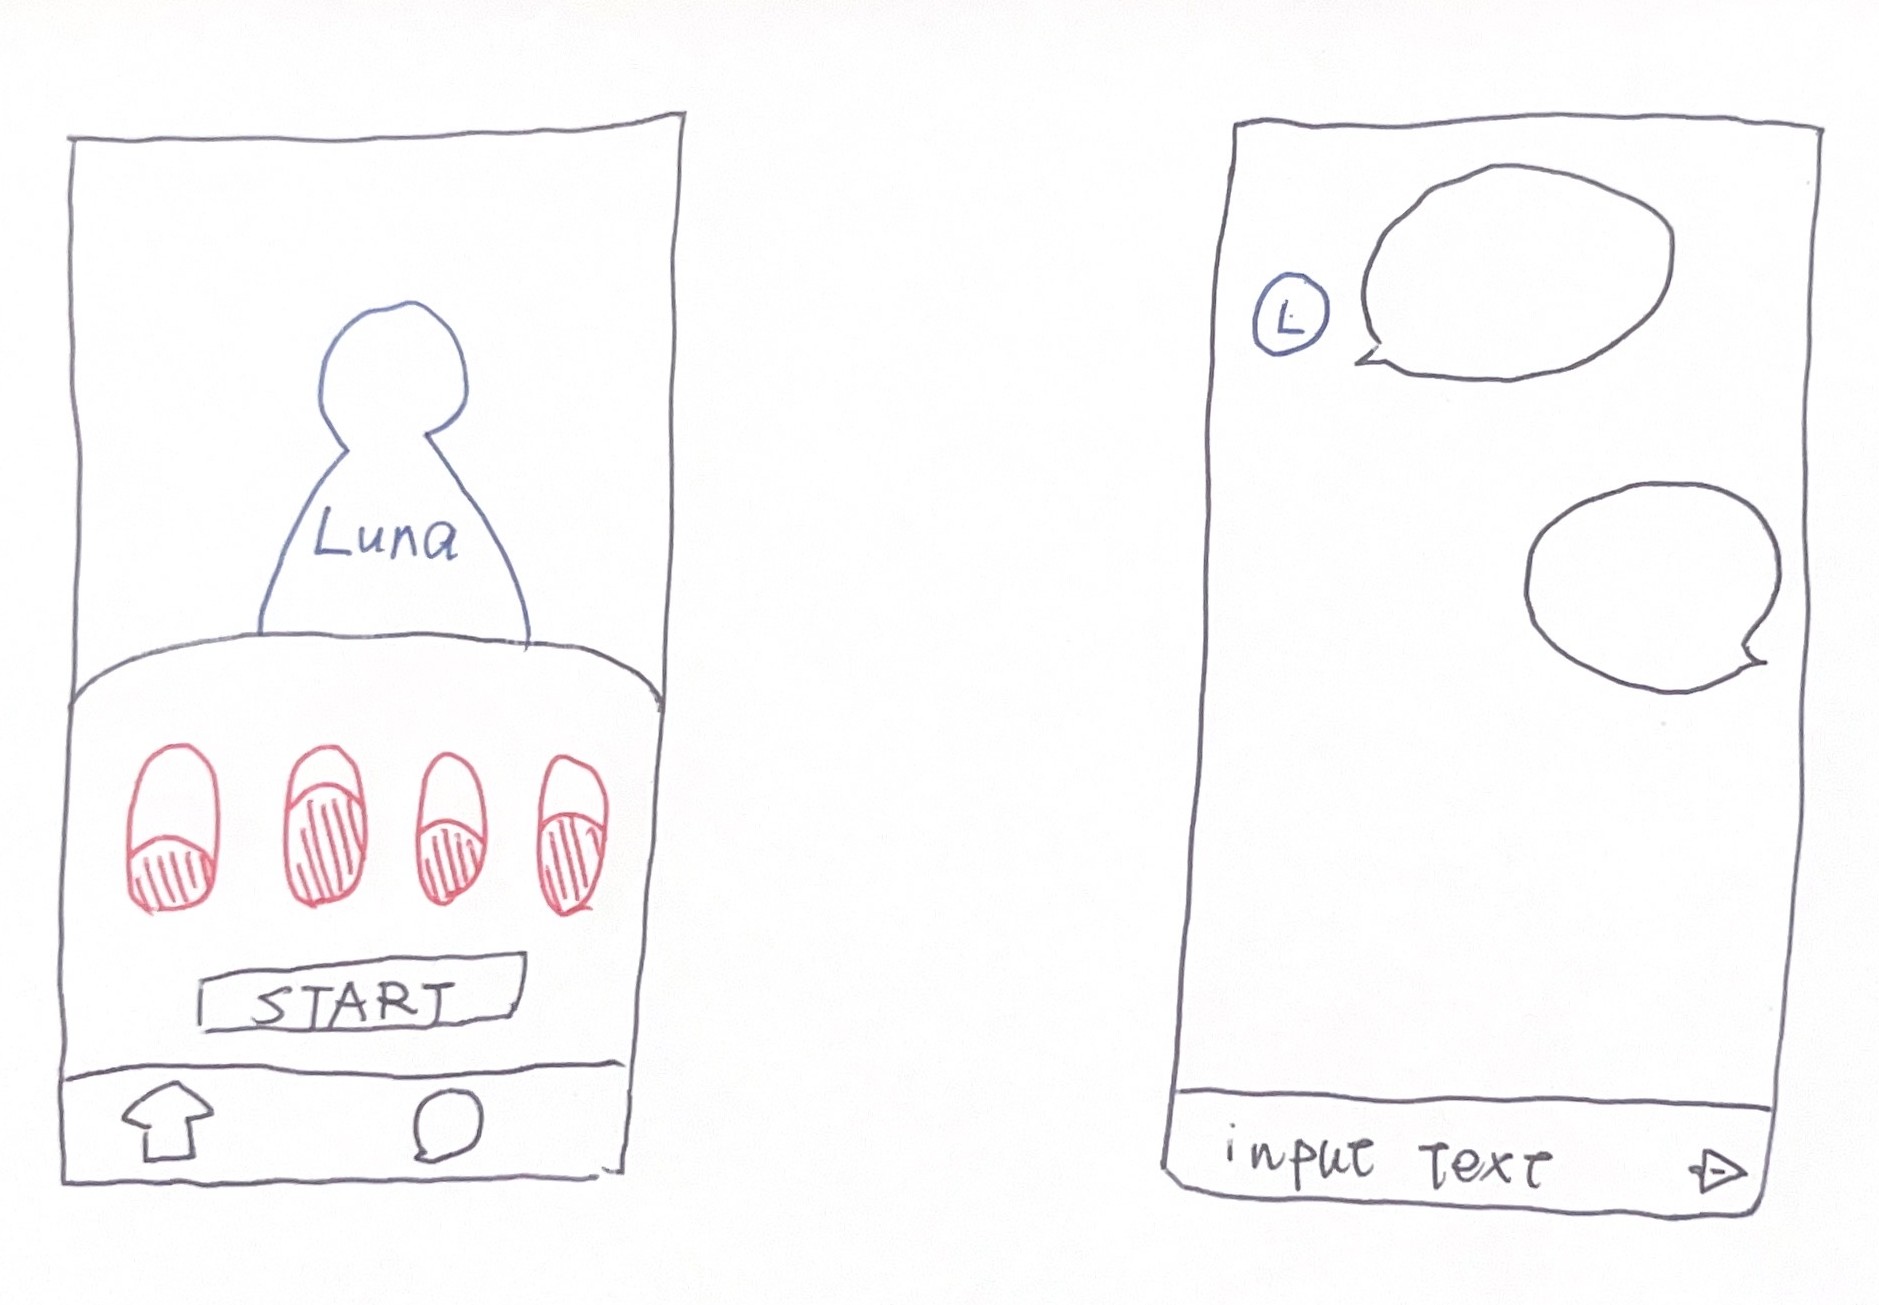 Luna
START
L
input text